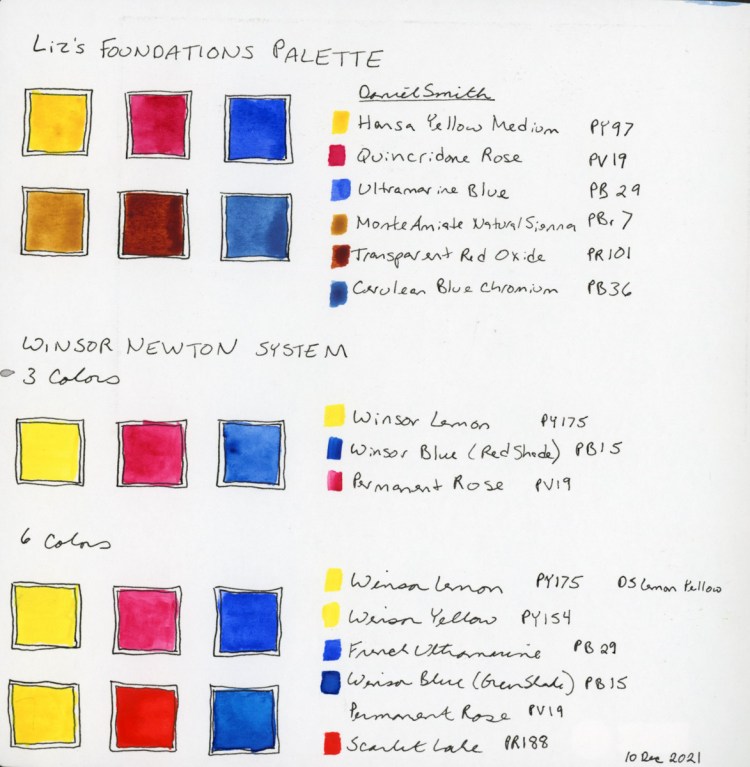 Liz's Foundations Palette
Daniel Smith
Hansa Yellow Medium PY97
Quincridone Rose PV19
Ultramarine Blue PB 29
Monte Amiate Natural Sienna PBr 7
Transparent Red Oxide PR101
Cerulean Blue Chromium PB36
Winsor Newton System
3 Colors
Winsor Lemon PY175
Winsor Blue (Red Shade) PB15
Permanent Rose PV19
6 Colors
Winsor Lemon PY175 DS Lemon Yellow
Winsor Yellow PY154
French Ultramarine PB 29
Winsor Blue (Green Shade) PB15
Permanent Rose PV19
Scarlet Lake PR188
10 Dec 2021